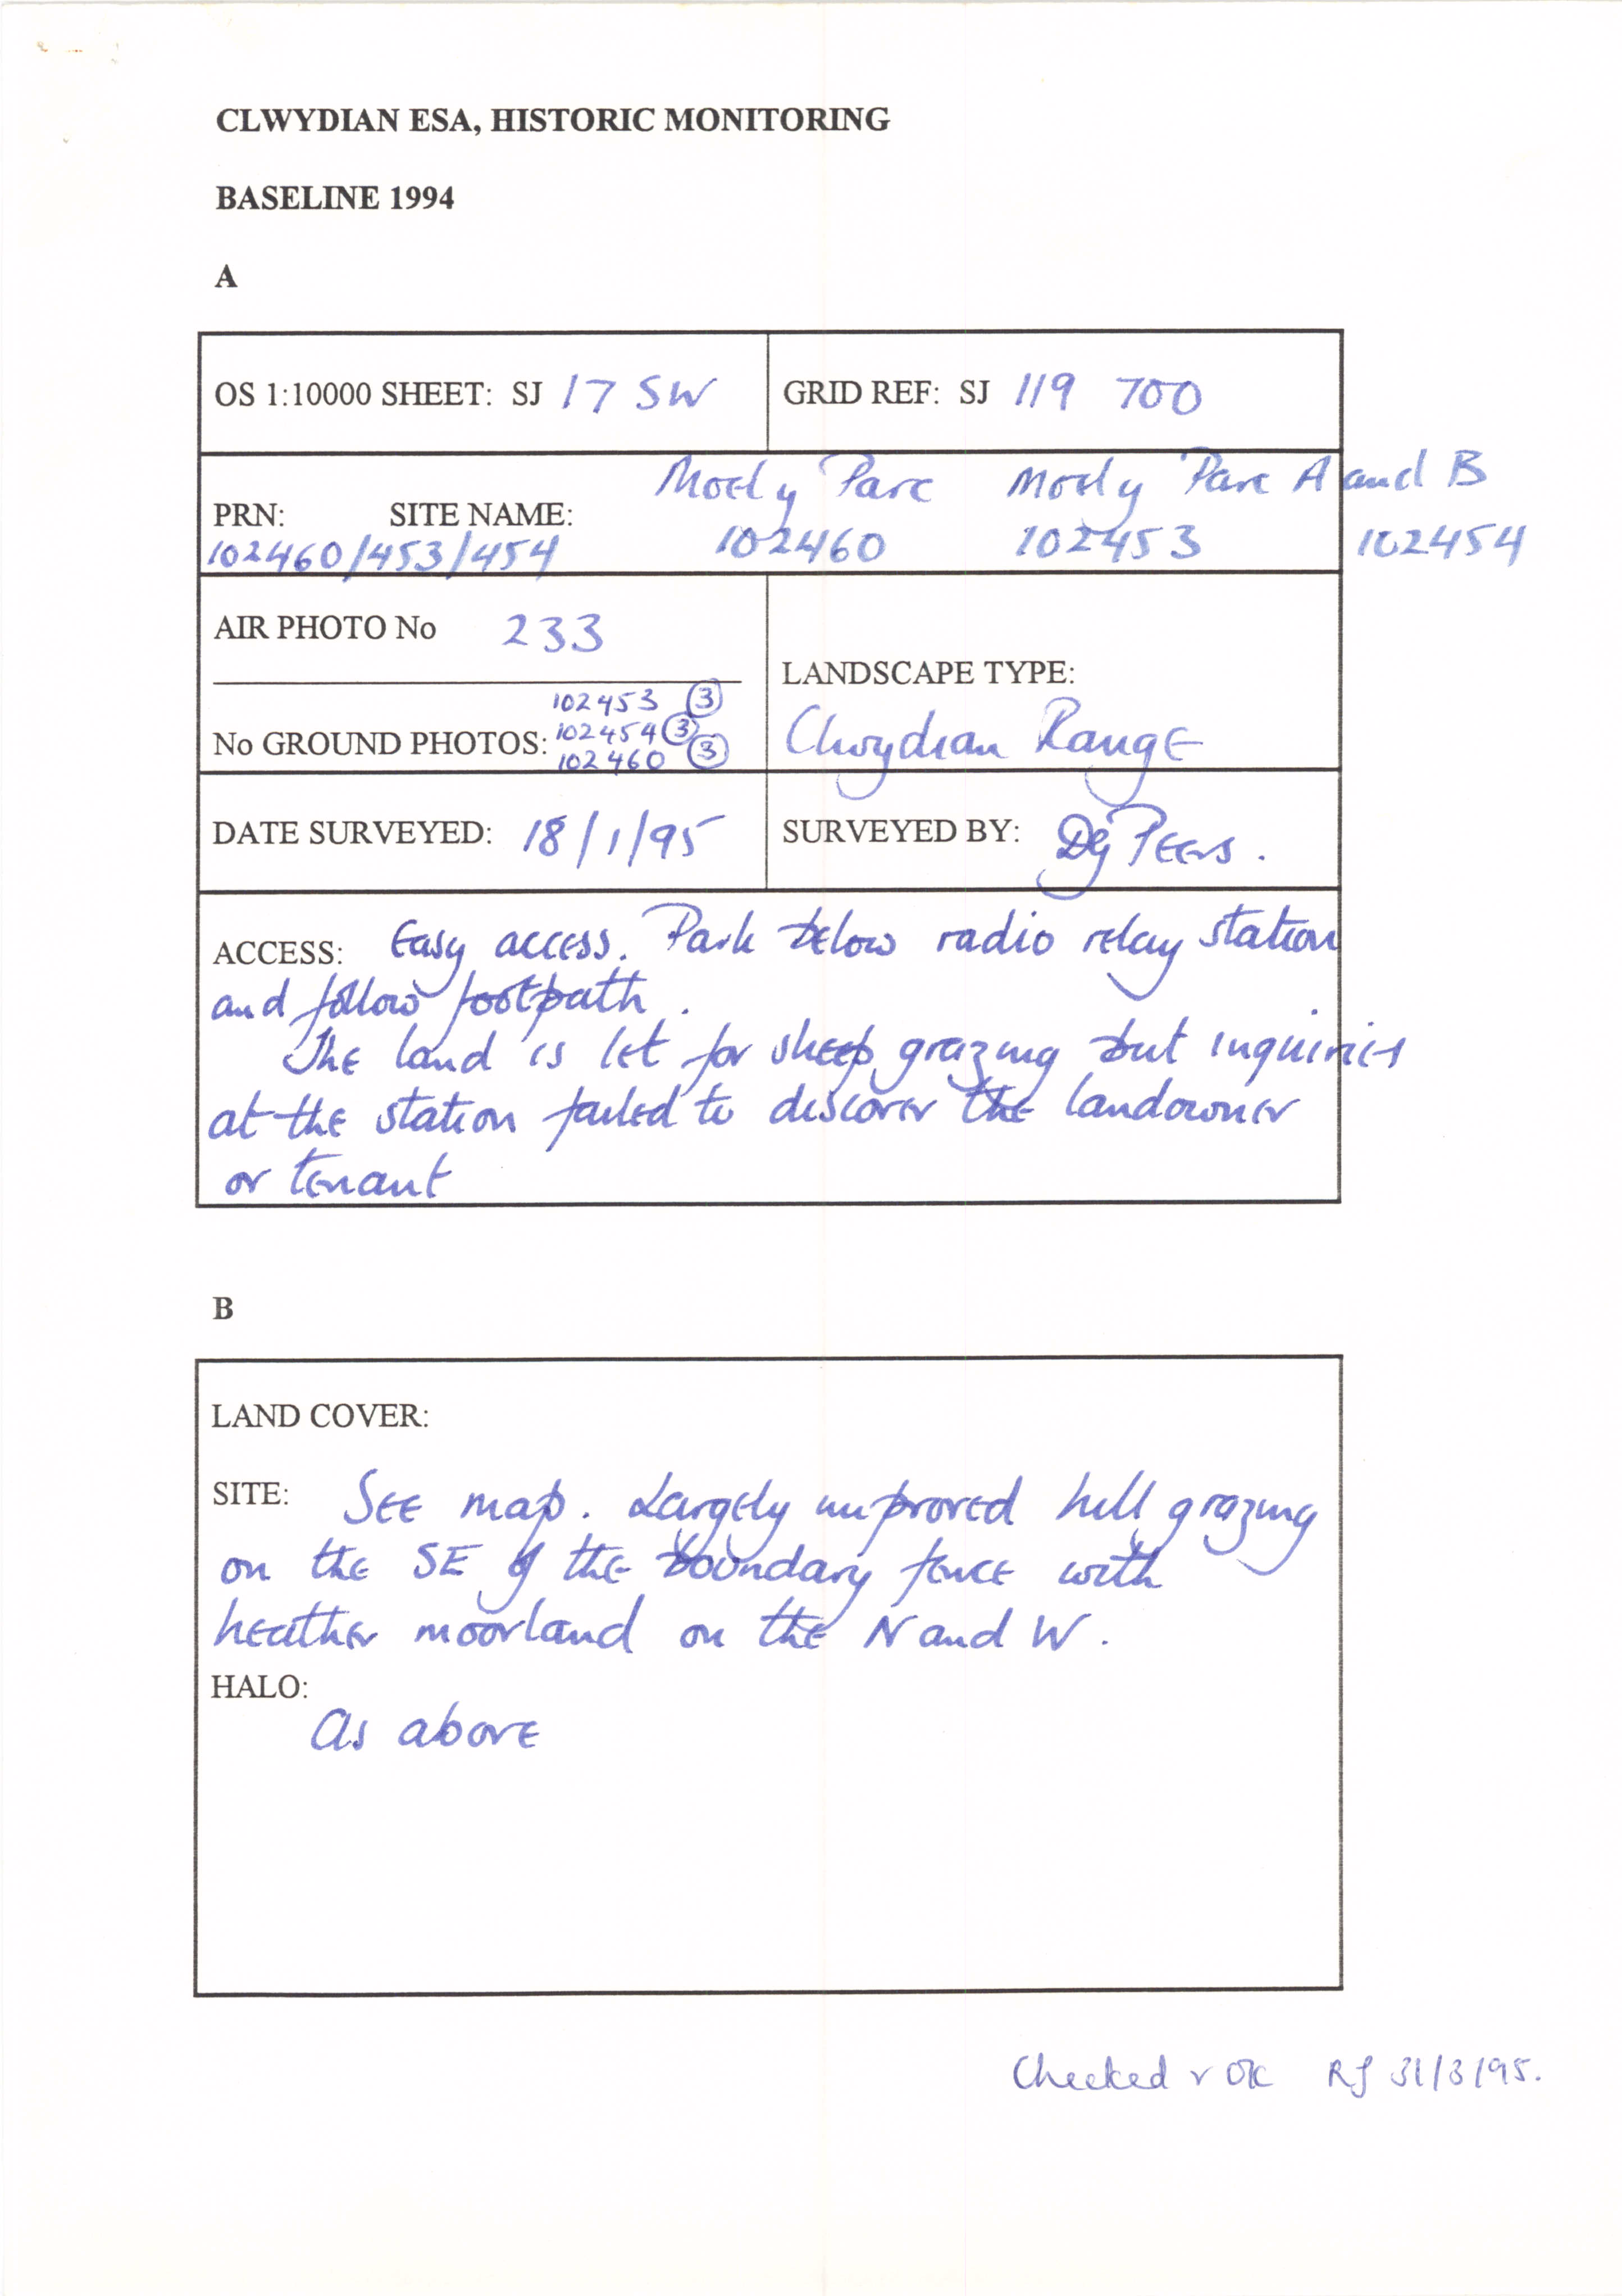 CLWYDIAN ESA, HISTORIC MONITORING
BASELINE 1994
A
OS 1:10000 SHEET: SJ 17 SW
GRID REF: SJ 119 700
PRN: SITE NAME: Moel y Parc Moel y Parc A and B
102460/453/454 102460 102453 102454
AIR PHOTO No 233
No GROUND PHOTOS: 102453 (3)
102454 (3)
102460 (3)
LANDSCAPE TYPE:
Clwydian Range
DATE SURVEYED: 18/1/95
SURVEYED BY: DG Peers.
ACCESS: Easy access. Park below radio relay station
and follow footpath.
The land is let for sheep grazing but inquiries
at the station failed to discover the landowner
or tenant
B
LAND COVER:
SITE: See map. Largely improved hill grazing
on the SE of the boundary fence with
heather moorland on the N and W.
HALO:
As above
Checked & OK RJ 31/3/95.